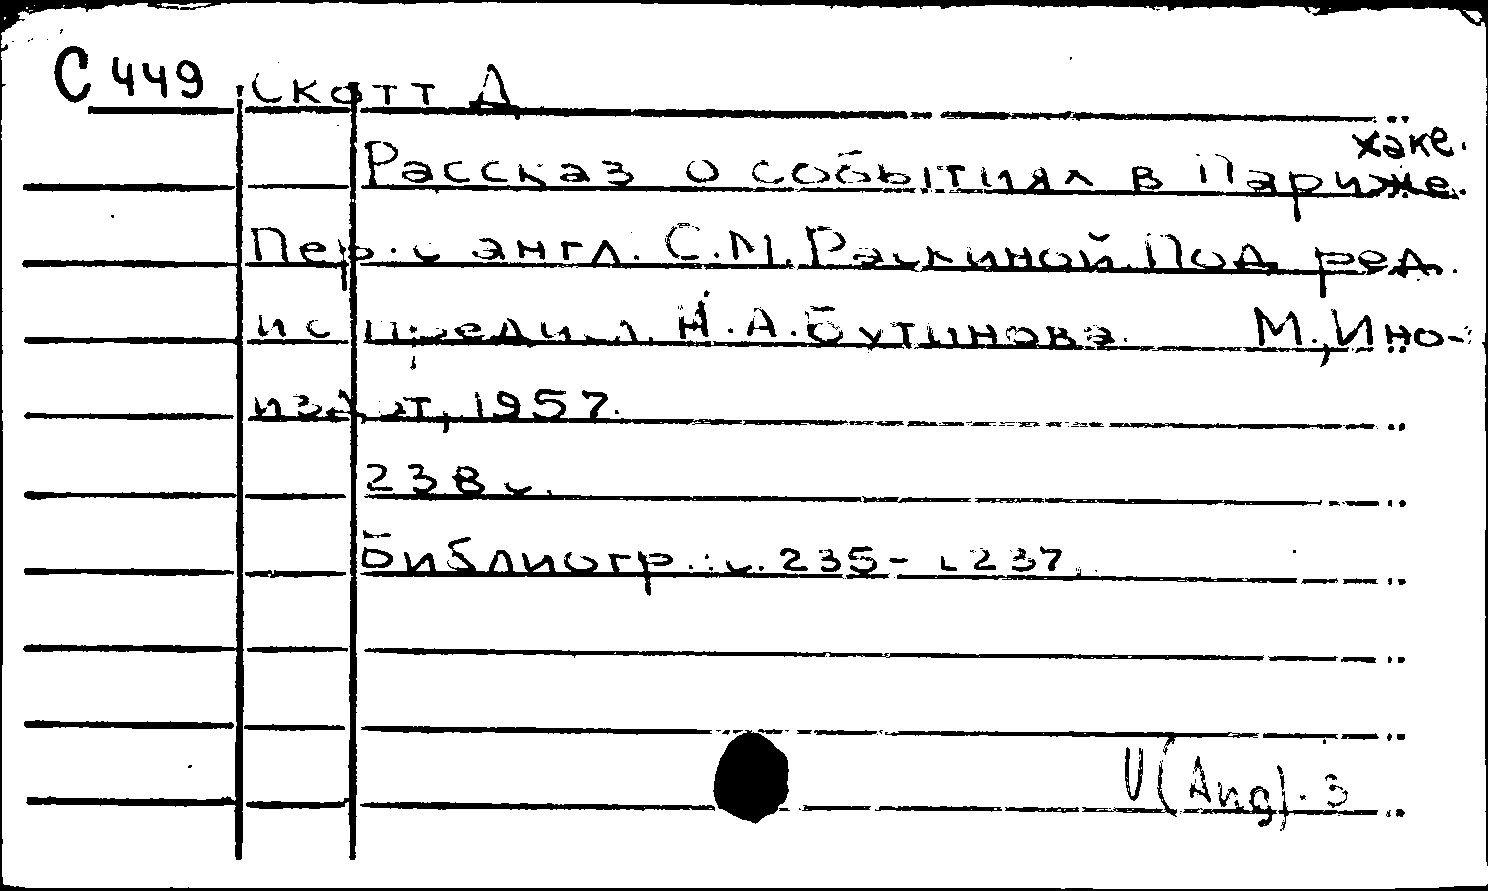 С 449 Скотт Д
Рассказ о событиях в Парижже.
хаке.
Пер. с англ. С.М. Раскиной. Под ред.
и с предисл. Н.А. Бутинова. М., Ино-
издат, 1957.
238 с.
Библиогр.: с. 235-237.
И(Анg).3